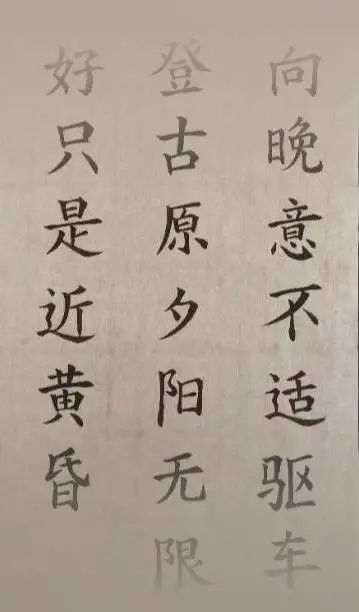 向晚意不适驱车
登古原夕阳无限
好只是近黄昏